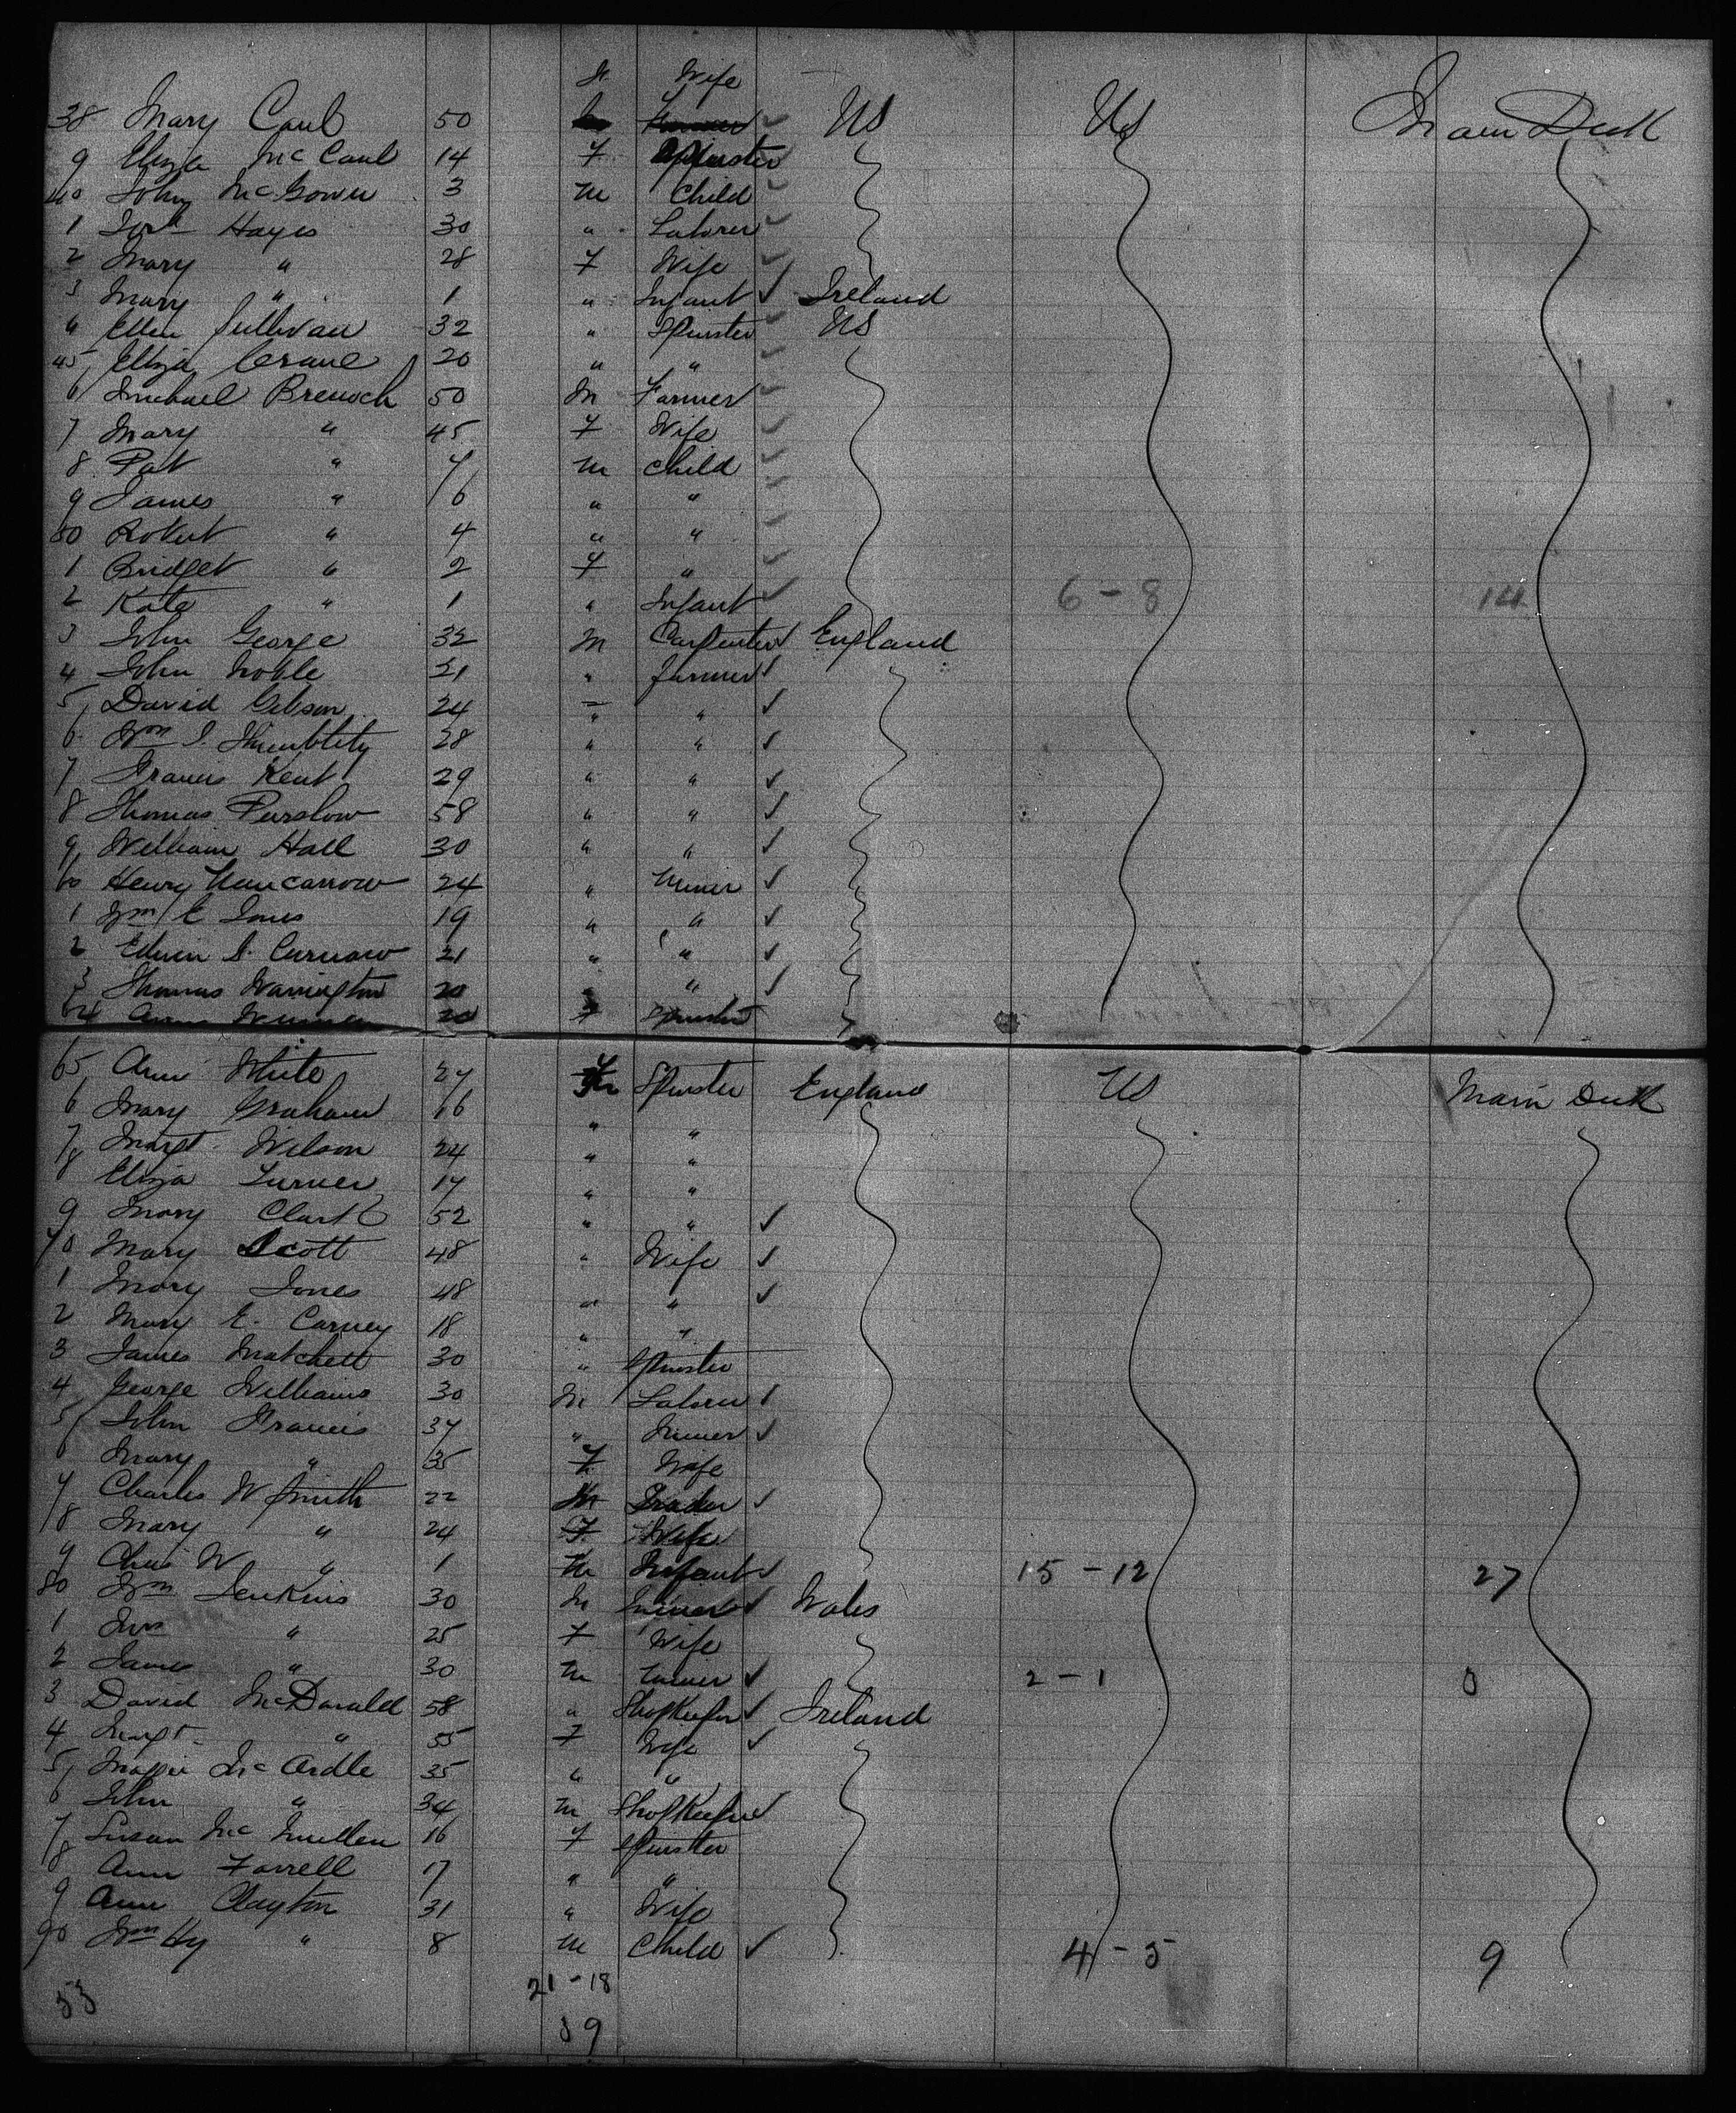 F Wife
38 Mary Caul 50 US US Main Deck
9 Eliza McCaul 14 F Spinster
40 John McGowen 3 M Child
1 Hayes 30 " Laborer
2 Mary " 28 F Wife
3 Mary " 1 " Infant Ireland
4 Ellen Sullivan 32 " Spinster US
45 Eliza Crane 20 " "
6 Michael 50 M Farmer
7 Mary " 45 F Wife
8 Pat " 7 M Child
9 James " 6 " "
50 Robert " 4 " "
1 Bridget " 2 F "
2 Kate " 1 " Infant 6-8 14
3 John George 32 M Carpenter England
4 John Noble 21 " Farmer
5 David Gibson 24 " "
6 Wm 28 " "
7 Francis Kent 29 " "
8 Thomas Purslow 58 " "
9 William Hall 30 " "
60 Henry Nancarrow 24 " Miner
1 Wm E Jones 19 " "
2 Edwin S. Curnow 21 " "
3 Thomas Warrington 20 " "
64 20 F Spinster
65 Ann White 27 F Spinster England US Main Deck
6 Mary Graham 16 " "
7 Margt. Wilson 24 " "
8 Eliza Turner 17 " "
9 Mary Clark 52 " "
70 Mary Scott 48 " Wife
1 Mary Jones 48 " "
2 Mary E. Carney 18 " "
3 James Matchett 30 " Spinster
4 George Williams 30 M Laborer
5 John Francis 37 " Miner
6 Mary " 35 F Wife
7 Charles W Smith 22 M
8 Mary " 24 F Wife
9 Chas W " 1 M Infant 15-12 27
80 Wm Jenkins 30 M Miner Wales
1 " 25 F Wife
2 James " 30 M Miner 2-1 3
3 David McDonald 58 " Shopkeeper Ireland
4 Margt " 55 F Wife
5 Maggie McArdle 35 " "
6 John " 34 M Shopkeeper
7 Susan McMullen 16 F Spinster
8 Ann Farrell 17 " "
9 Ann Clayton 31 " Wife
90 Wm Hy " 8 M Child 4-5 9
21-18
53
39